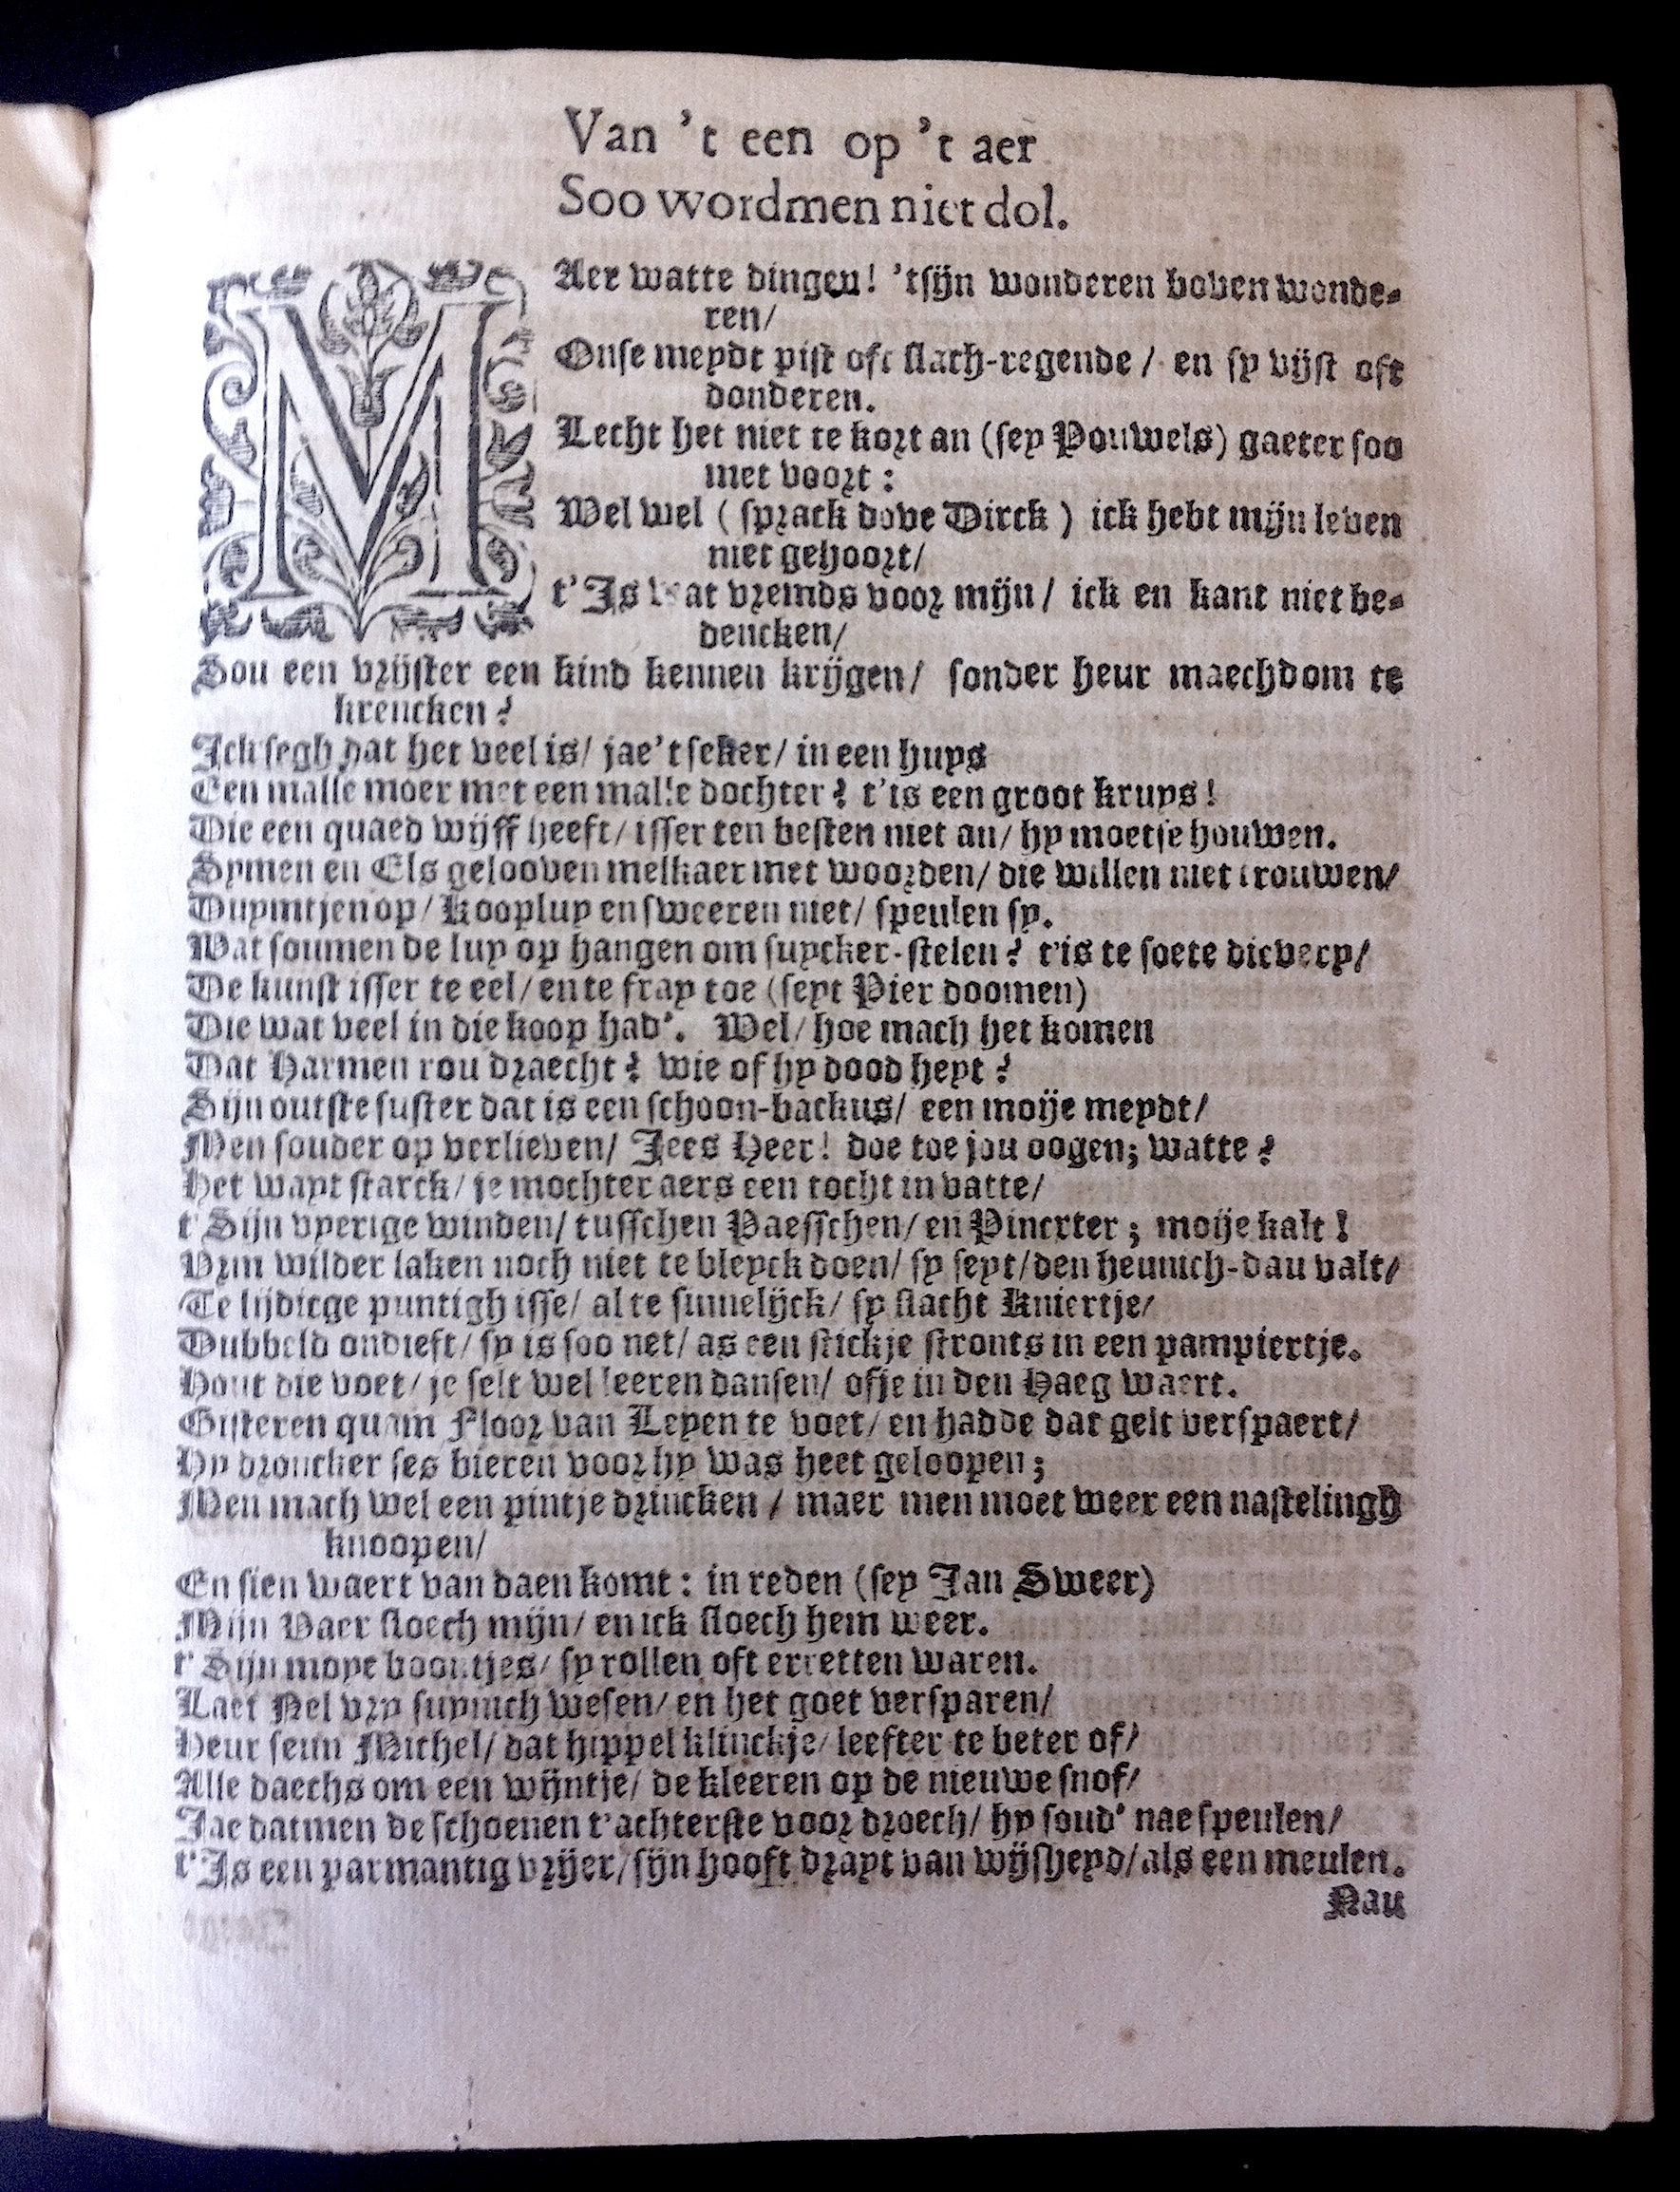 Van 't een op 't aer
Soo wordmen niet dol.
MAer watte dingen! 'tsijn wonderen boven wonde-
ren/
Onse meydt pist oft slach-regende / en sy vijst oft
donderen.
Lecht het niet te kort an (sey Pouwels) gaeter soo
met voort :
Wel wel ( sprack dove Dirck ) ick hebt mijn leven
niet gehoort/
t'Is wat vremds voor mijn / ick en kant niet be-
dencken/
Sou een vrijster een kind kennen krijgen/ sonder heur maechdom te
krencken?
Ick segh dat het veel is/ jae't seker/ in een huys
Een malle moer met een malle dochter? t'is een groot kruys!
Die een quaed wijff heeft/ isser ten besten niet an/ hy moetse houwen.
Symen en Els gelooven melkaer met woorden/ die willen niet trouwen/
Duymtjen op/ Kooplup en sweeren niet/ speulen sy.
Wat soumen de luy op hangen om suycker-stelen? t'is te soete dievery/
De kunst isser te eel/ en te fray toe (seyt Pier doomen)
Die wat veel in die koop had'. Wel/ hoe mach het komen
Dat Harmen rou draecht? wie of hy dood heyt?
Sijn outste suster dat is een schoon-backus/ een moije meydt/
Men souder op verlieven/ Jees Heer! doe toe jou oogen; watte?
Het wayt starck/ je mochter aers een tocht in vatte/
t'Sijn vyerige winden/ tusschen Paesschen/ en Pinxter ; moije kalt!
Vrin wilder laken noch niet te bleyck doen/ sy seyt/den heunich-dau valt/
Te lijdicge puntigh isse/ al te sinnelijck/ sy slacht Kniertje/
Dubbeld ondieft/ sy is soo net/ as een stickje stronts in een pampiertje.
Hout die voet/ je selt wel leeren dansen/ ofje in den Haeg waert.
Gisteren quam Floor van Leyen te voet/ en hadde dat gelt verspaert/
Hy droncker ses bieren voor hy was heet geloopen ;
Men mach wel een pintje drincken / maer men moet weer een nastelingh
knoopen/
En sien waert van daen komt : in reden (sey Jan Sweer)
Mijn Vaer sloech mijn/ en ick sloech hem weer.
t'Sijn moye boontjes/ sy rollen oft erretten waren.
Laet Nel vry suynich wesen/ en het goet versparen/
Heur seun Michel/ dat hippel klinckje/ leefter te beter of/
Alle daechs om een wijntje/ de kleeren op de nieuwe snof/
Jae datmen de schoenen t'achterste voor droech/ hy soud' nae speulen/
t'Is een parmantig vrijer/ sijn hooft drayt van wijsheyd/ als een meulen.
Nau